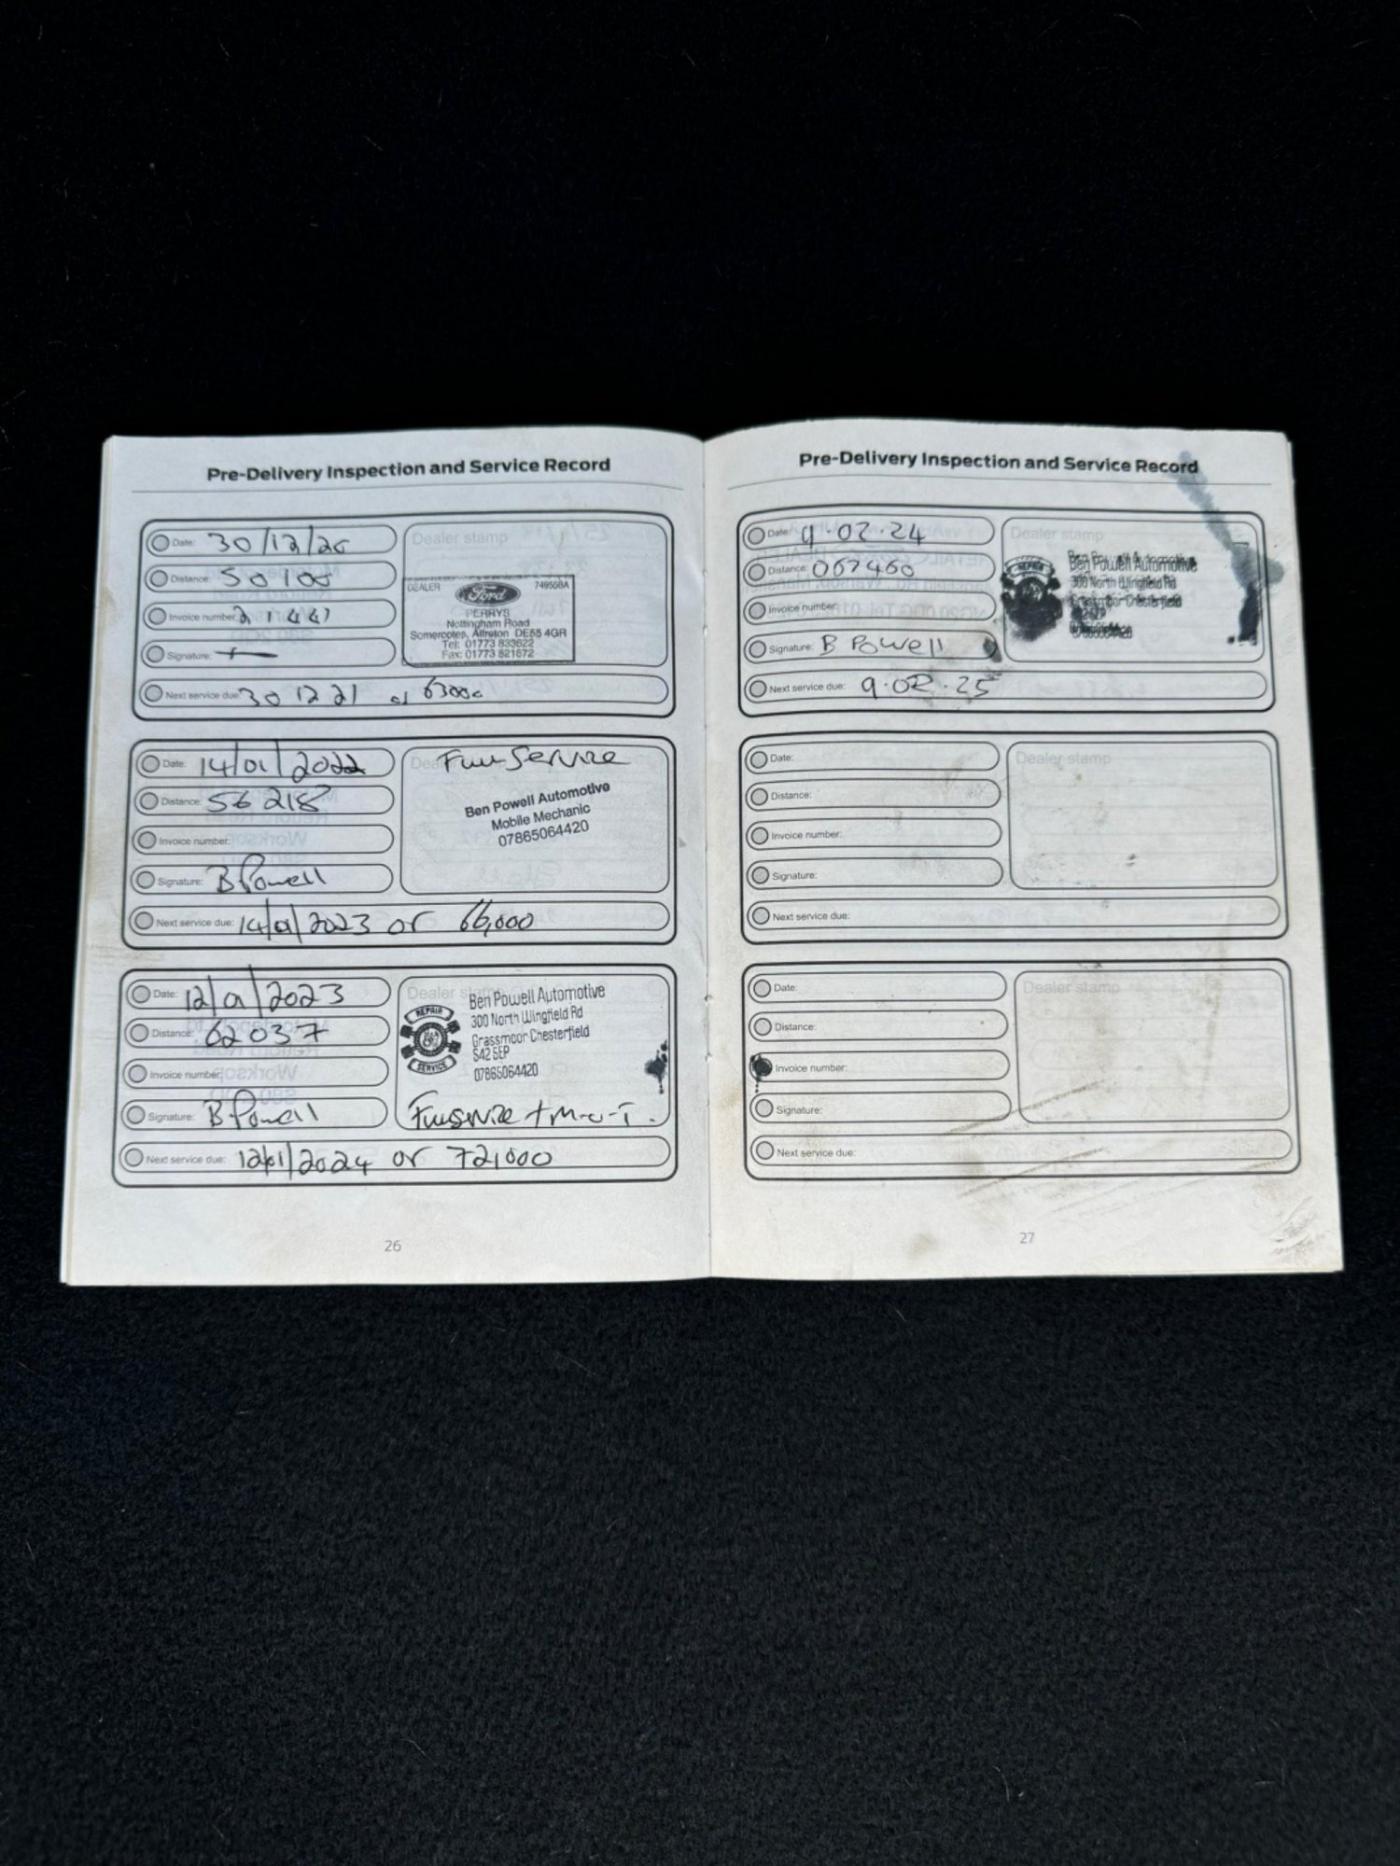 Pre-Delivery Inspection and Service Record
Date: 30/12/20
Distance: 50100
Invoice number:
Signature:
Next service due: 30 12 21 or 63000
Dealer stamp
DEALER 74950BA
Ford
PERRYS
Nottingham Road
Somercotes, Alfreton DE55 4GR
Tel: 01773 833622
Fax: 01773 821672
Date: 14/01/2022
Distance: 56218
Invoice number:
Signature: B Powell
Next service due: 14/01/2023 or 66,000
Full Service
Ben Powell Automotive
Mobile Mechanic
07865064420
Date: 12/01/2023
Distance: 62037
Invoice number:
Signature: B Powell
Next service due: 12/01/2024 or 72,000
Dealer stamp
REPAIR
SERVICE
Ben Powell Automotive
300 North Wingfield Rd
Grassmoor Chesterfield
S42 5EP
07865064420
Full Service + M-o-T.
26
Pre-Delivery Inspection and Service Record
Date: 9.02.24
Distance: 067460
Invoice number:
Signature: B Powell
Next service due: 9.02.25
Dealer stamp
REPAIR
Ben Powell Automotive
300 North Wingfield Rd
Grassmoor Chesterfield
07865064420
Date:
Distance:
Invoice number:
Signature:
Next service due:
Dealer stamp
Date:
Distance:
Invoice number:
Signature:
Next service due:
Dealer stamp
27